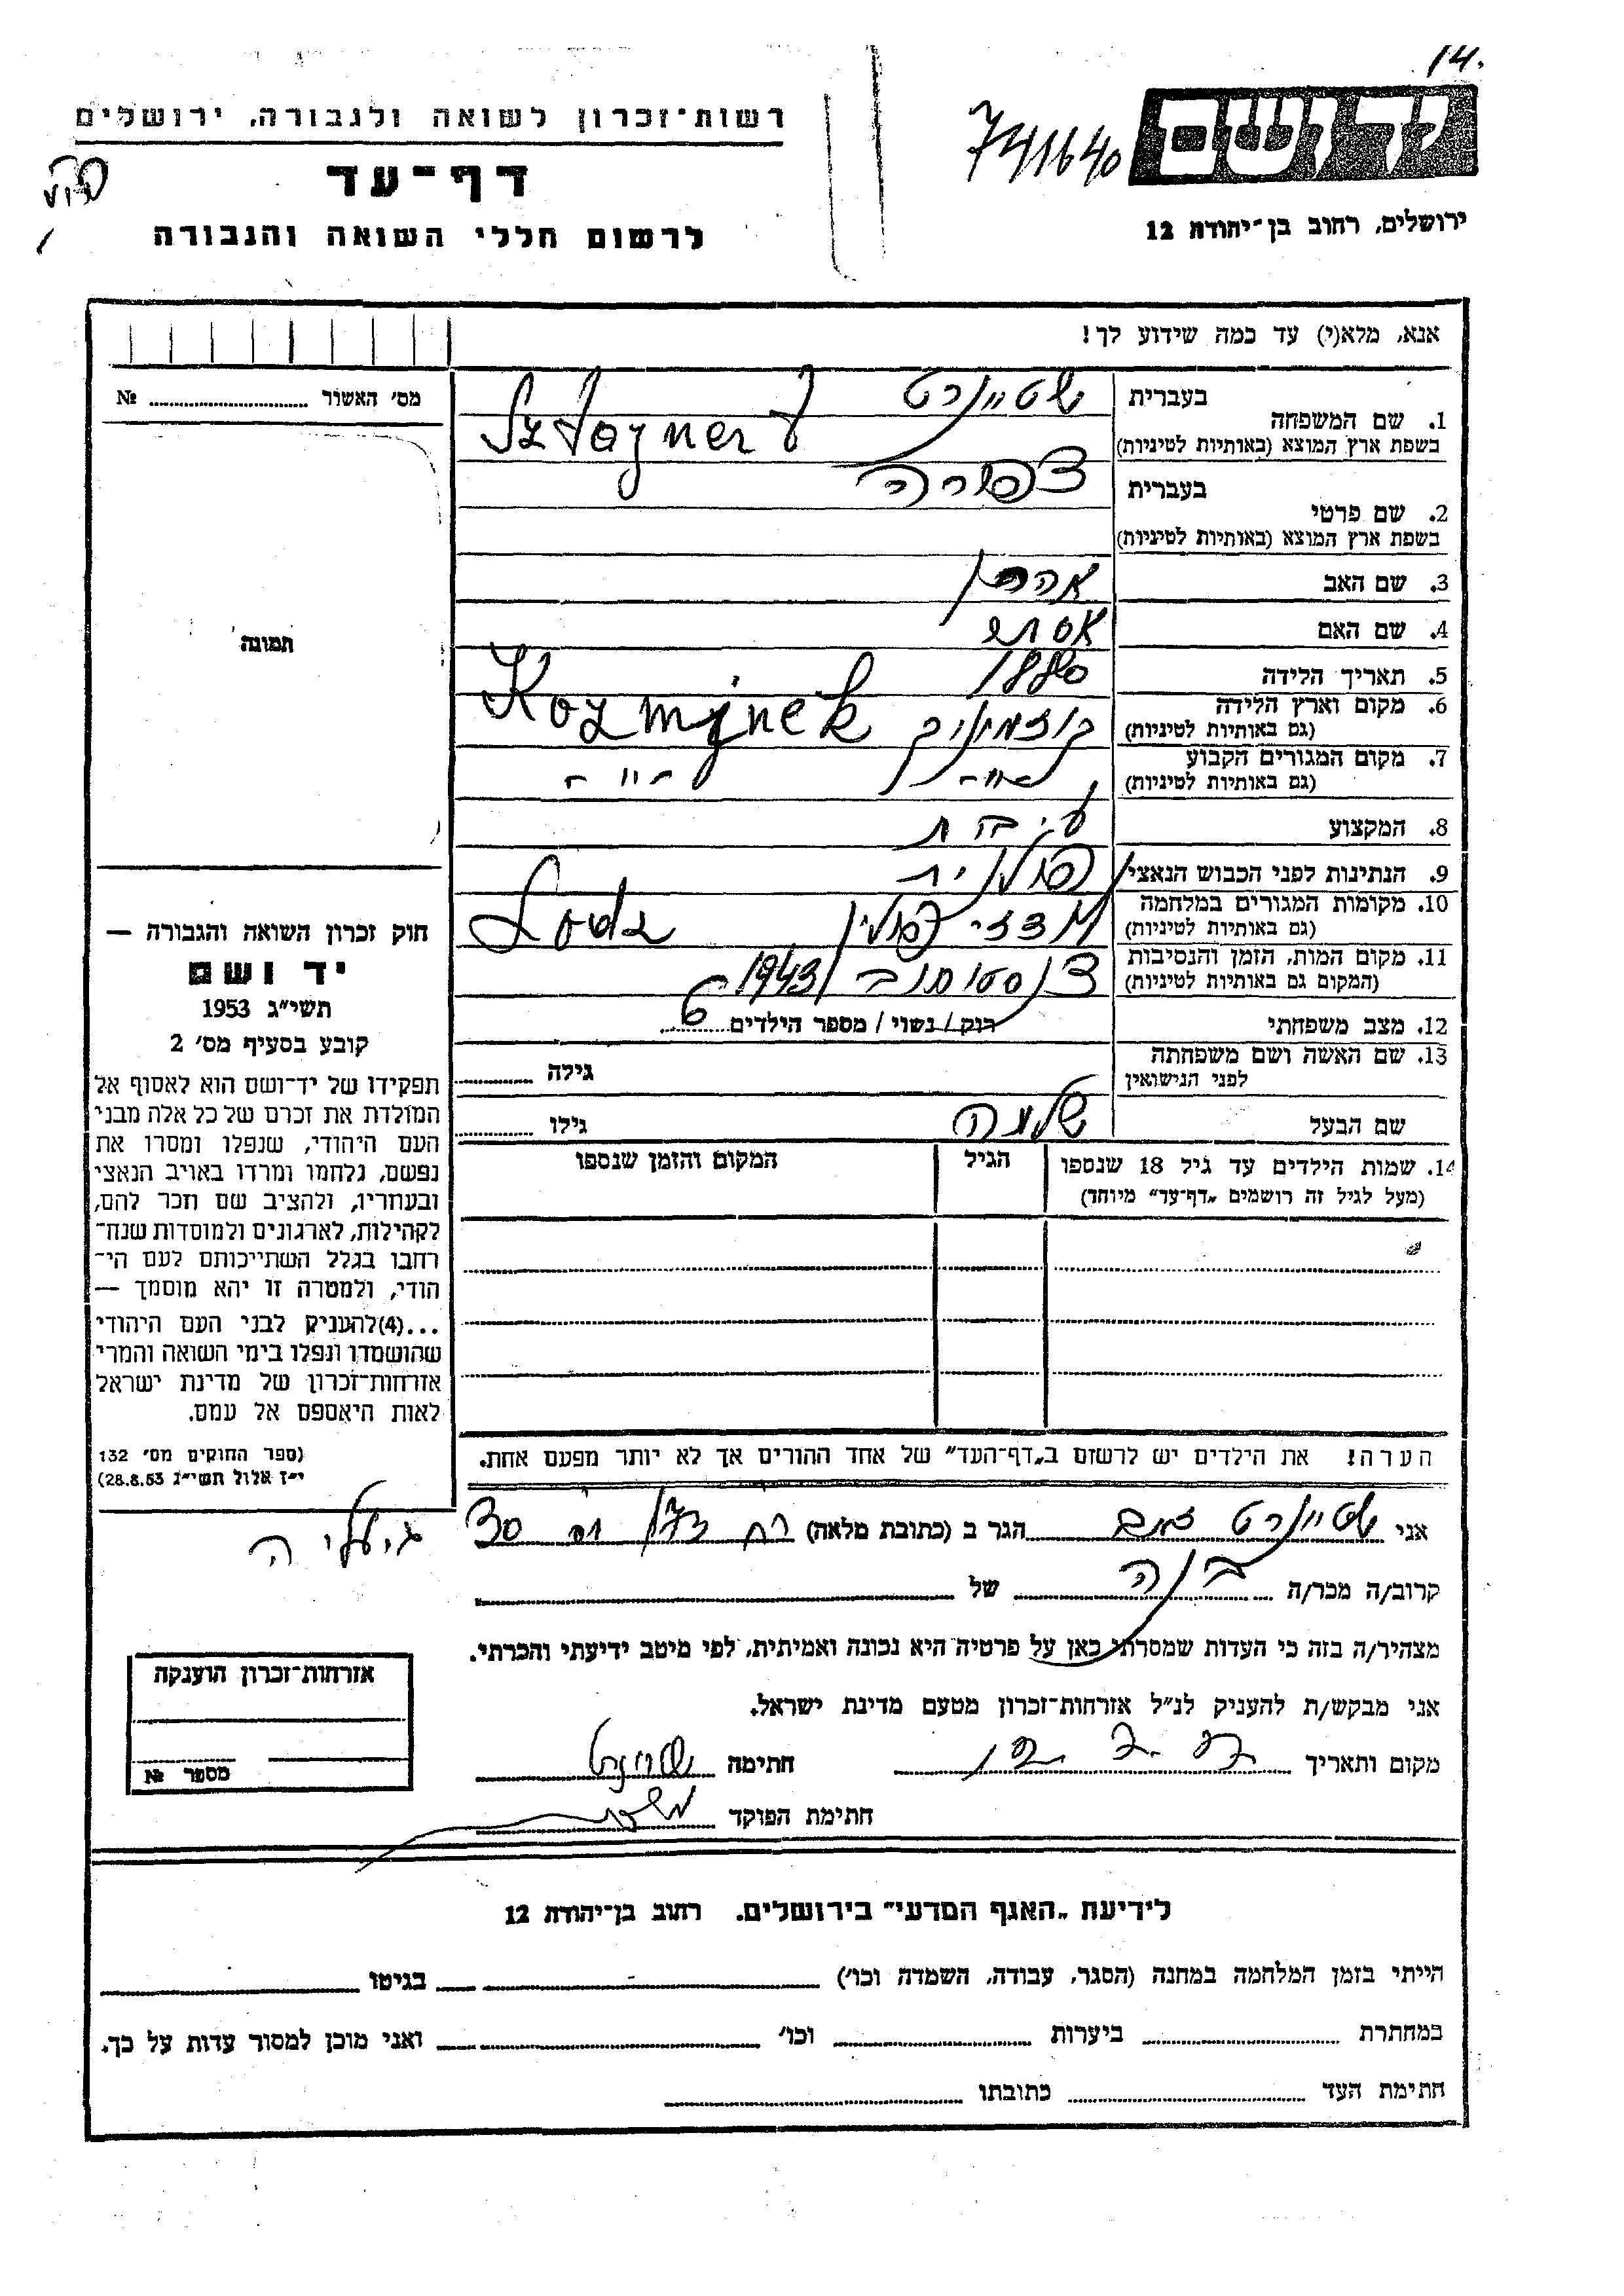 14.
יד ושם
741640
ירושלים, רחוב בן־יהודה 12
רשות־זכרון לשואה ולגבורה, ירושלים
דף־עד
לרשום חללי השואה והגבורה
אנא, מלא(י) עד כמה שידוע לך!
מס׳ האשור № 
בעברית שטיינרט
1. שם המשפחה
בשפת ארץ המוצא (באותיות לטיניות) Sztaynert
בעברית צפורה
2. שם פרטי
בשפת ארץ המוצא (באותיות לטיניות)
3. שם האב אהרן
4. שם האם אסתר
5. תאריך הלידה 1880
6. מקום וארץ הלידה
(גם באותיות לטיניות) קוזמינק Kozminek
7. מקום המגורים הקבוע
(גם באותיות לטיניות) -״- -״-
8. המקצוע
9. הנתינות לפני הכבוש הנאצי פולנית
10. מקומות המגורים במלחמה
(גם באותיות לטיניות) לודז׳ פולין Lodz
11. מקום המות, הזמן והנסיבות
(המקום גם באותיות לטיניות) 1943
12. מצב משפחתי רוק/נשוי/ מספר הילדים 6
13. שם האשה ושם משפחתה
לפני הנישואין גילה
שם הבעל שלמה גילו
14. שמות הילדים עד גיל 18 שנספו הגיל המקום והזמן שנספו
(מעל לגיל זה רושמים „דף־עד״ מיוחד)
הערה! את הילדים יש לרשום ב„דף־העד״ של אחד ההורים אך לא יותר מפעם אחת.
תמונה
חוק זכרון השואה והגבורה —
יד ושם
תשי״ג 1953
קובע בסעיף מס׳ 2
תפקידו של יד־ושם הוא לאסוף אל
המולדת את זכרם של כל אלה מבני
העם היהודי, שנפלו ומסרו את
נפשם, נלחמו ומרדו באויב הנאצי
ובעוזריו, ולהציב שם וזכר להם,
לקהילות, לארגונים ולמוסדות שנח־
רבו בגלל השתייכותם לעם הי־
הודי, ולמטרה זו יהא מוסמך —
...(4)להעניק לבני העם היהודי
שהושמדו ונפלו בימי השואה והמרי
אזרחות־זכרון של מדינת ישראל
לאות היאספם אל עמם.
(ספר החוקים מס׳ 132
י״ז אלול תשי״ג 28.8.53)
אני שטיינרט הגר ב (כתובת מלאה) 30
קרוב/ה מכר/ה בנה של
מצהיר/ה בזה כי העדות שמסרתי כאן על פרטיה היא נכונה ואמיתית, לפי מיטב ידיעתי והכרתי.
אני מבקש/ת להעניק לנ״ל אזרחות־זכרון מטעם מדינת ישראל.
מקום ותאריך חתימה
חתימת הפוקד
אזרחות־זכרון הוענקה
מספר №
לידיעת „האגף המדעי״ בירושלים. רחוב בן־יהודה 12
הייתי בזמן המלחמה במחנה (הסגר, עבודה, השמדה וכו׳) בגיטו
במחתרת ביערות וכו׳ ואני מוכן למסור עדות על כך.
חתימת העד כתובתו